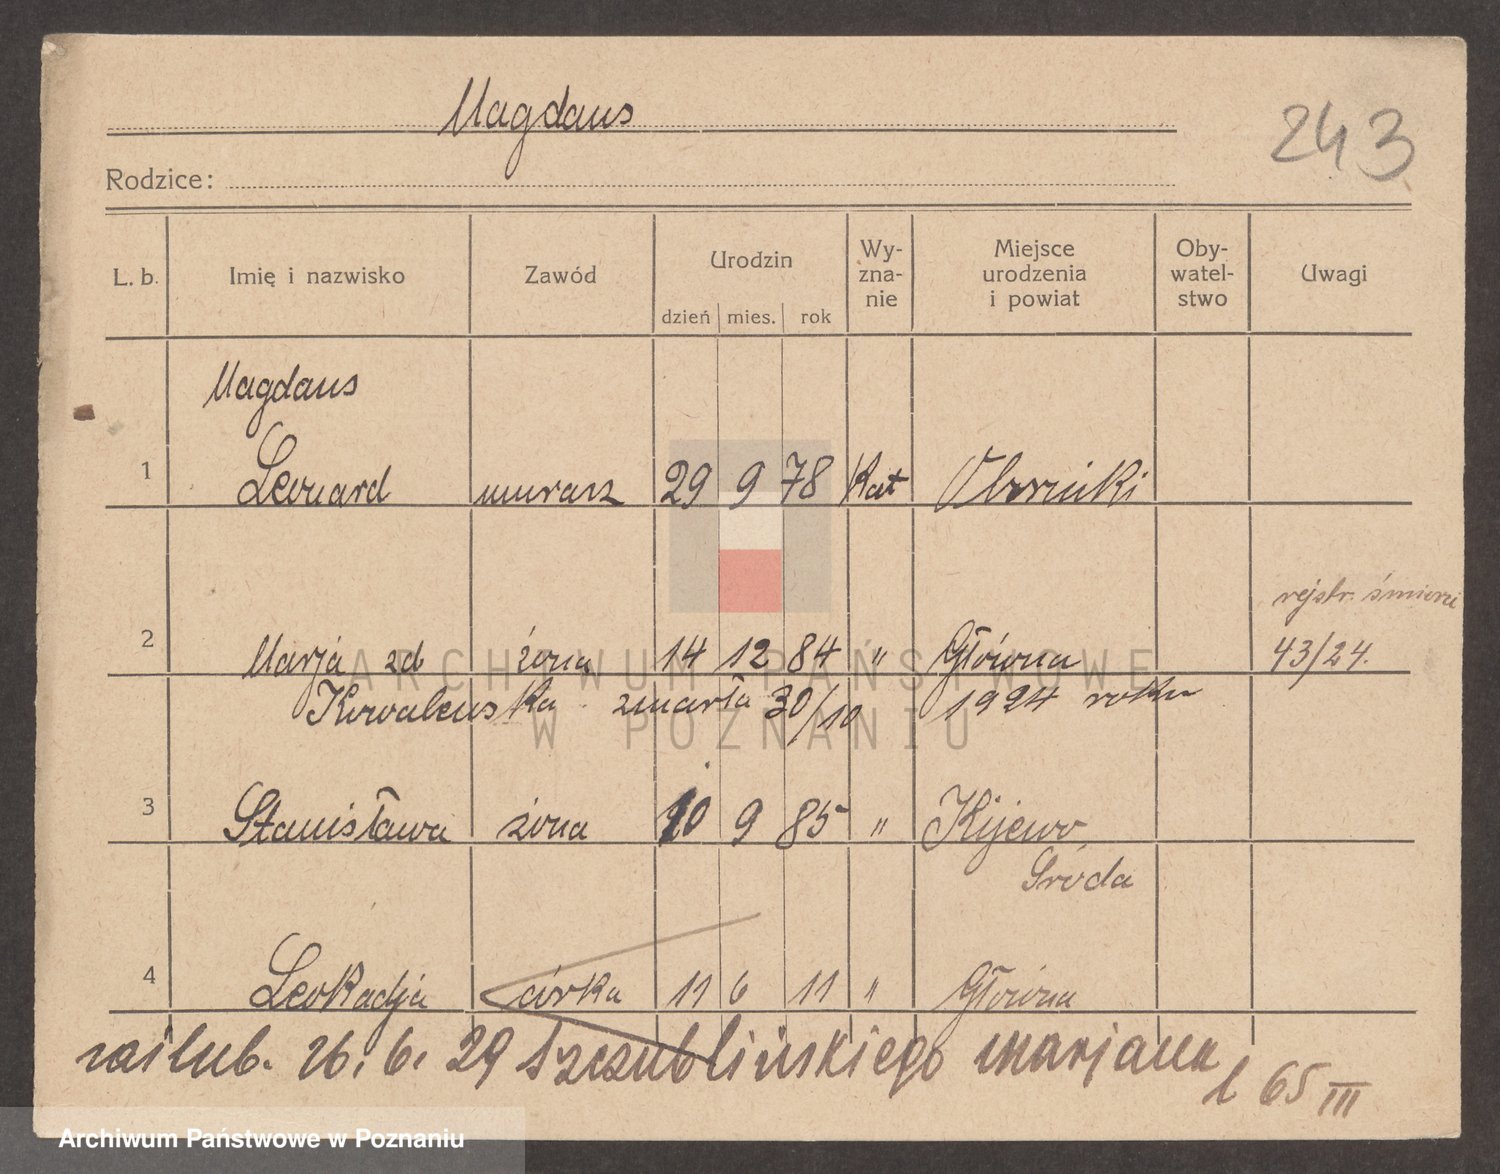 Magdans
243
Rodzice:
L. b. Imię i nazwisko Zawód Urodzin dzień mies. rok Wy-zna-nie Miejsce urodzenia i powiat Oby-watel-stwo Uwagi
Magdans
1 Leonard murarz 29 9 78 Kat Oborniki
rejstr. śmierci
2 Marja zd żona 14 12 84 " Główna 43/24.
Kowalewska zmarła 30/10 1924 roku
3 Stanisława żona 10 9 85 " Kijewo
Środa
4 Leokadja córka 11 6 11 " Główna
zaślub. 26. 6. 29 Szczublińskiego marjana
l 65 III
ARCHIWUM PAŃSTWOWE
W POZNANIU
Archiwum Państwowe w Poznaniu